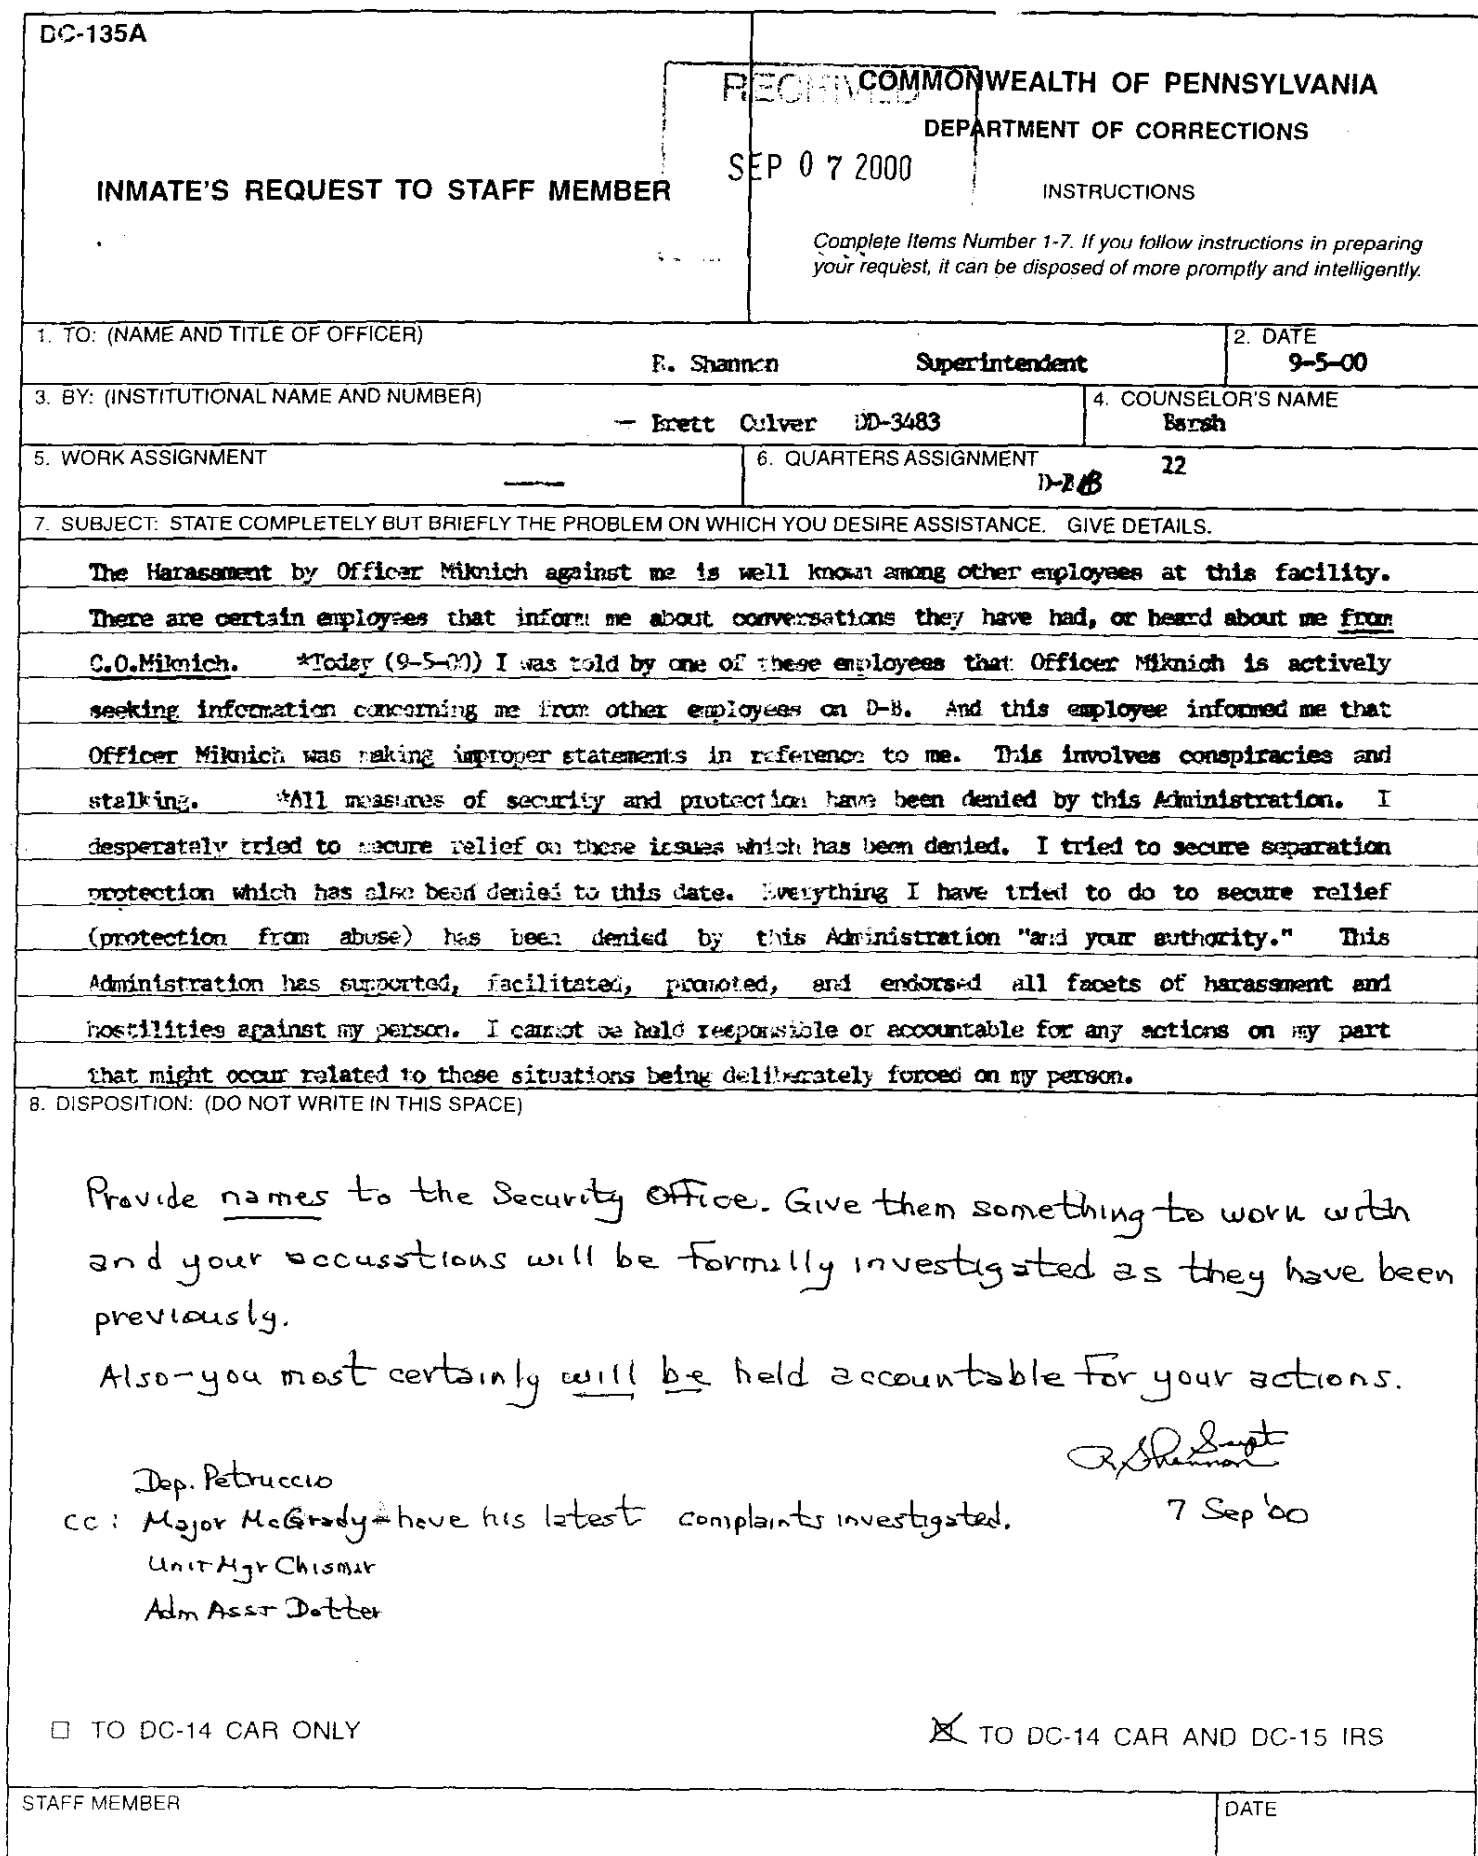 DC-135A
RECEIVED
COMMONWEALTH OF PENNSYLVANIA
DEPARTMENT OF CORRECTIONS
SEP 07 2000
INMATE'S REQUEST TO STAFF MEMBER
INSTRUCTIONS
Complete Items Number 1-7. If you follow instructions in preparing
your request, it can be disposed of more promptly and intelligently.
1. TO: (NAME AND TITLE OF OFFICER)
R. Shannon Superintendent
2. DATE
9-5-00
3. BY: (INSTITUTIONAL NAME AND NUMBER)
— Brett Culver DD-3483
4. COUNSELOR'S NAME
Barsh
5. WORK ASSIGNMENT
——
6. QUARTERS ASSIGNMENT
22
7. SUBJECT: STATE COMPLETELY BUT BRIEFLY THE PROBLEM ON WHICH YOU DESIRE ASSISTANCE. GIVE DETAILS.
The Harassment by Officer Miknich against me is well known among other employees at this facility.
There are certain employees that inform me about conversations they have had, or heard about me from
C.O.Miknich. *Today (9-5-00) I was told by one of these employees that Officer Miknich is actively
seeking information concerning me from other employees on D-B. And this employee informed me that
Officer Miknich was making improper statements in reference to me. This involves conspiracies and
stalking. *All measures of security and protection have been denied by this Administration. I
desperately tried to secure relief on these issues which has been denied. I tried to secure separation
protection which has also been denied to this date. Everything I have tried to do to secure relief
(protection from abuse) has been denied by this Administration "and your authority." This
Administration has supported, facilitated, promoted, and endorsed all facets of harassment and
hostilities against my person. I cannot be held responsible or accountable for any actions on my part
that might occur related to these situations being deliberately forced on my person.
8. DISPOSITION: (DO NOT WRITE IN THIS SPACE)
Provide names to the Security Office. Give them something to work with
and your accusstions will be formally investigated as they have been
previously.
Also-you most certainly will be held accountable for your actions.
R. Shannon Supt
7 Sep '00
Dep. Petruccio
cc: Major McGrady - have his latest complaints investigated.
Unit Mgr Chismar
Adm Asst Dotter
☐ TO DC-14 CAR ONLY
☒ TO DC-14 CAR AND DC-15 IRS
STAFF MEMBER
DATE